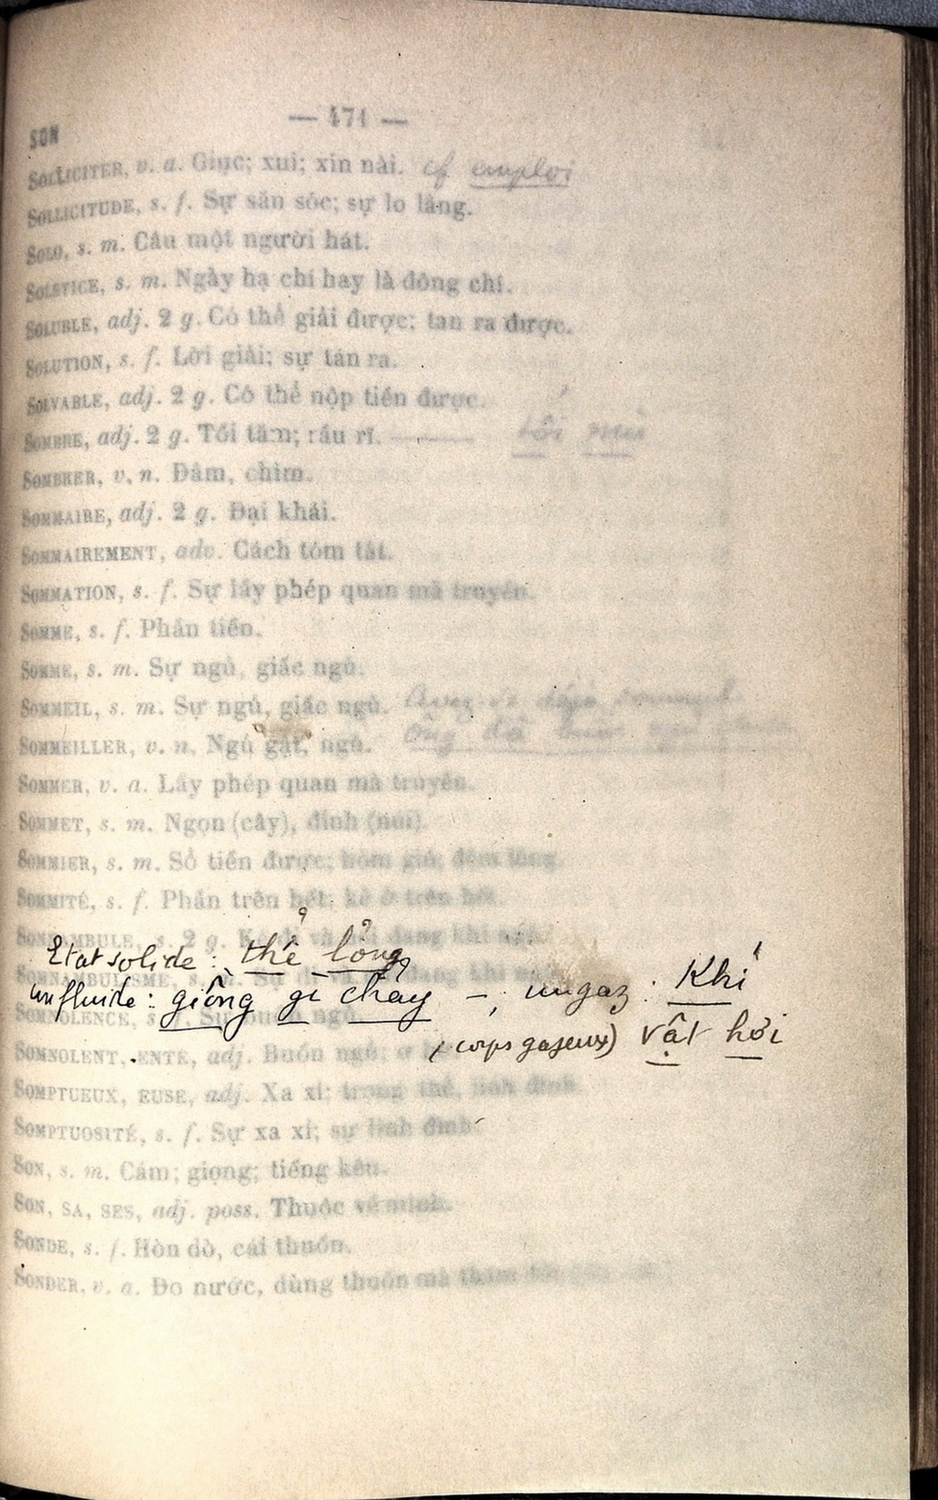 SON
— 471 —
SOLLICITER, v. a. Giục; xui; xin nài. cf emploi
SOLLICITUDE, s. f. Sự săn sóc; sự lo lắng.
SOLO, s. m. Câu một người hát.
SOLSTICE, s. m. Ngày hạ chí hay là đông chí.
SOLUBLE, adj. 2 g. Có thể giải được; tan ra được.
SOLUTION, s. f. Lời giải; sự tán ra.
SOLVABLE, adj. 2 g. Có thể nộp tiền được.
SOMBRE, adj. 2 g. Tối tăm; rầu rĩ. — tối mù
SOMBRER, v. n. Đắm, chìm.
SOMMAIRE, adj. 2 g. Đại khái.
SOMMAIREMENT, adv. Cách tóm tắt.
SOMMATION, s. f. Sự lấy phép quan mà truyền.
SOMME, s. f. Phần tiền.
SOMME, s. m. Sự ngủ, giấc ngủ.
SOMMEIL, s. m. Sự ngủ, giấc ngủ.
SOMMEILLER, v. n. Ngủ gật, ngủ.
SOMMER, v. a. Lấy phép quan mà truyền.
SOMMET, s. m. Ngọn (cây), đỉnh (núi).
SOMMIER, s. m. Sổ tiền được;
SOMMITÉ, s. f. Phần trên hết; kẻ ở trên hết.
SOMNAMBULE, s. 2 g.
Etat solide : thể lỏng
SOMNAMBULISME, s. m.
un fluide : giống gì chảy —, un gaz : Khí
SOMNOLENCE, s. f. Sự buồn ngủ.
(corps gazeux) vật hơi
SOMNOLENT, ENTE, adj. Buồn ngủ;
SOMPTUEUX, EUSE, adj. Xa xỉ; trọng thể, linh đình
SOMPTUOSITÉ, s. f. Sự xa xỉ; sự linh đình.
SON, s. m. Cám; giọng; tiếng kêu.
SON, SA, SES, adj. poss. Thuộc về mình.
SONDE, s. f. Hòn dò, cái thuốn.
SONDER, v. a. Đo nước, dùng thuốn mà thăm